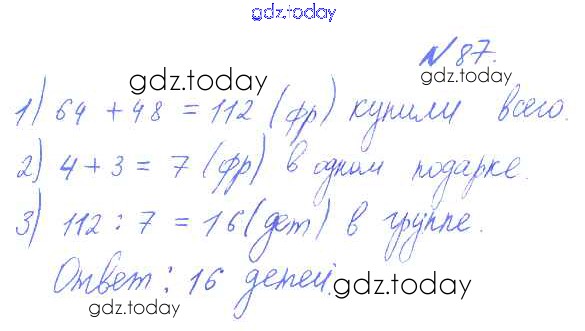 gdz.today
N 87.
gdz.today
gdz.today
1) 64 + 48 = 112 (фр) купили всего.
2) 4 + 3 = 7 (фр) в одном подарке.
3) 112 : 7 = 16 (дет) в группе.
Ответ: 16 детей.
gdz.today
gdz.today